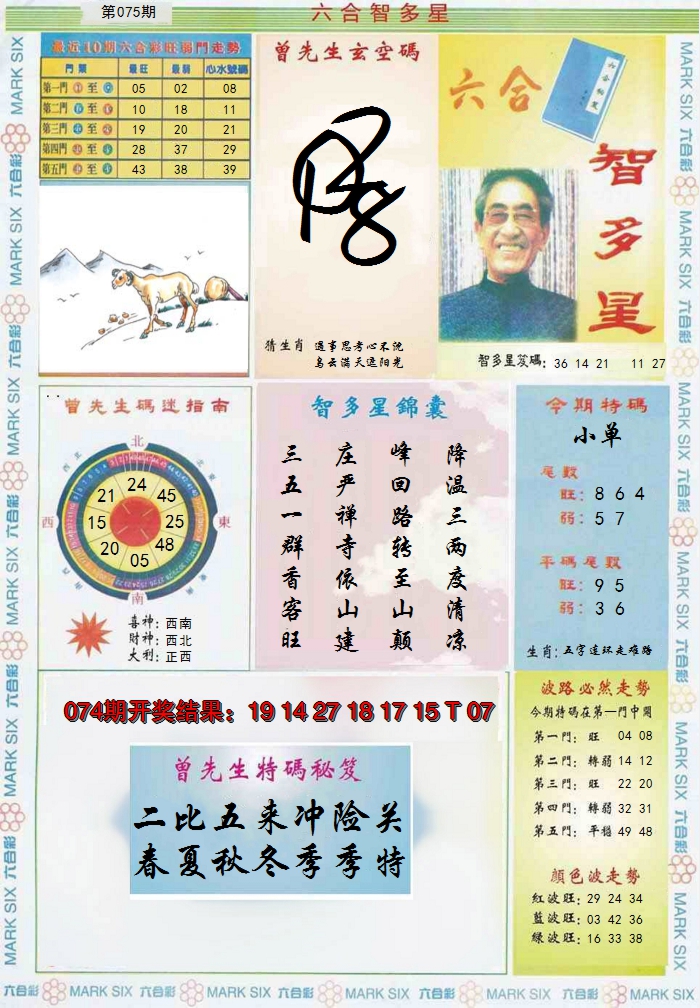 第075期
六合智多星
最近10期六合彩旺弱門走勢
門類 最旺 最弱 心水號碼
第一門 至 05 02 08
第二門 至 10 18 11
第三門 至 19 20 21
第四門 至 28 37 29
第五門 至 43 38 39
曾先生玄空碼
猜生肖 遇事思考心不沉
烏云满天遮阳光
六合
智多星
智多星笈碼: 36 14 21 11 27
曾先生碼迷指南
北
西北
東北
西
東
南
24
45
25
48
05
20
15
21
喜神: 西南
財神: 西北
大利: 正西
智多星錦囊
降温三两度清凉
峰回路转至山颠
庄严禅寺依山建
三五一群香客旺
今期特碼
小单
尾數
旺: 8 6 4
弱: 5 7
平碼尾數
旺: 9 5
弱: 3 6
生肖: 五字连环走难路
074期开奖结果: 19 14 27 18 17 15 T 07
曾先生特碼秘笈
二比五来冲险关
春夏秋冬季季特
波路必然走勢
今期特碼在第一門中開
第一門: 旺 04 08
第二門: 轉弱 14 12
第三門: 旺 22 20
第四門: 轉弱 32 31
第五門: 平穩 49 48
顏色波走勢
紅波旺: 29 24 34
藍波旺: 03 42 36
綠波旺: 16 33 38
MARK SIX 六合彩